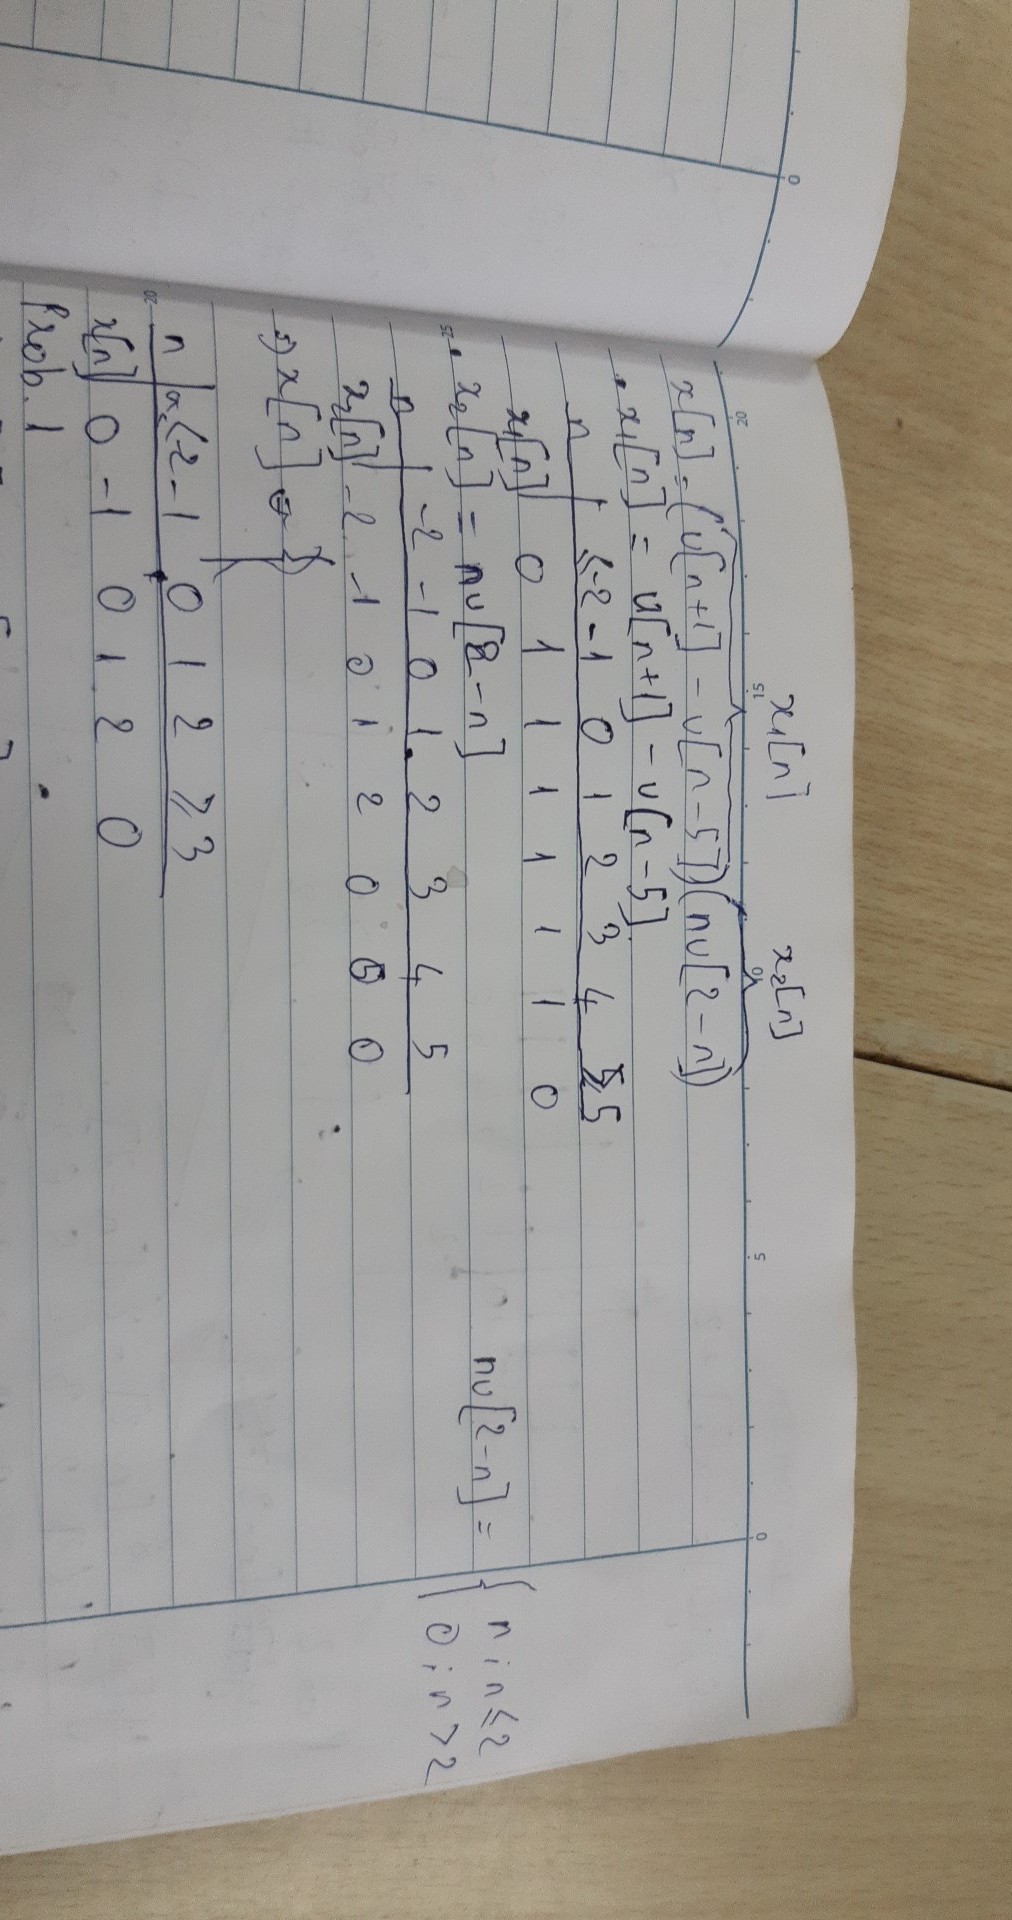 x₁[n] x₂[n]
20 15 10 5 0
0
x[n] = (u[n+1] - u[n-5])(nu[2-n])
• x₁[n] = u[n+1] - u[n-5].
n ≤-2 -1 0 1 2 3 4 ≥5
x₁[n] 0 1 1 1 1 1 1 0
• x₂[n] = nu[2-n]
nu[2-n] = { n ; n≤2
0 ; n>2
25
n -2 -1 0 1 2 3 4 5
x₂[n] -2 -1 0 1 2 0 0 0
⇒ x[n] =
n ≤-2 -1 0 1 2 ≥3
20
x[n] 0 -1 0 1 2 0
Prob. 1